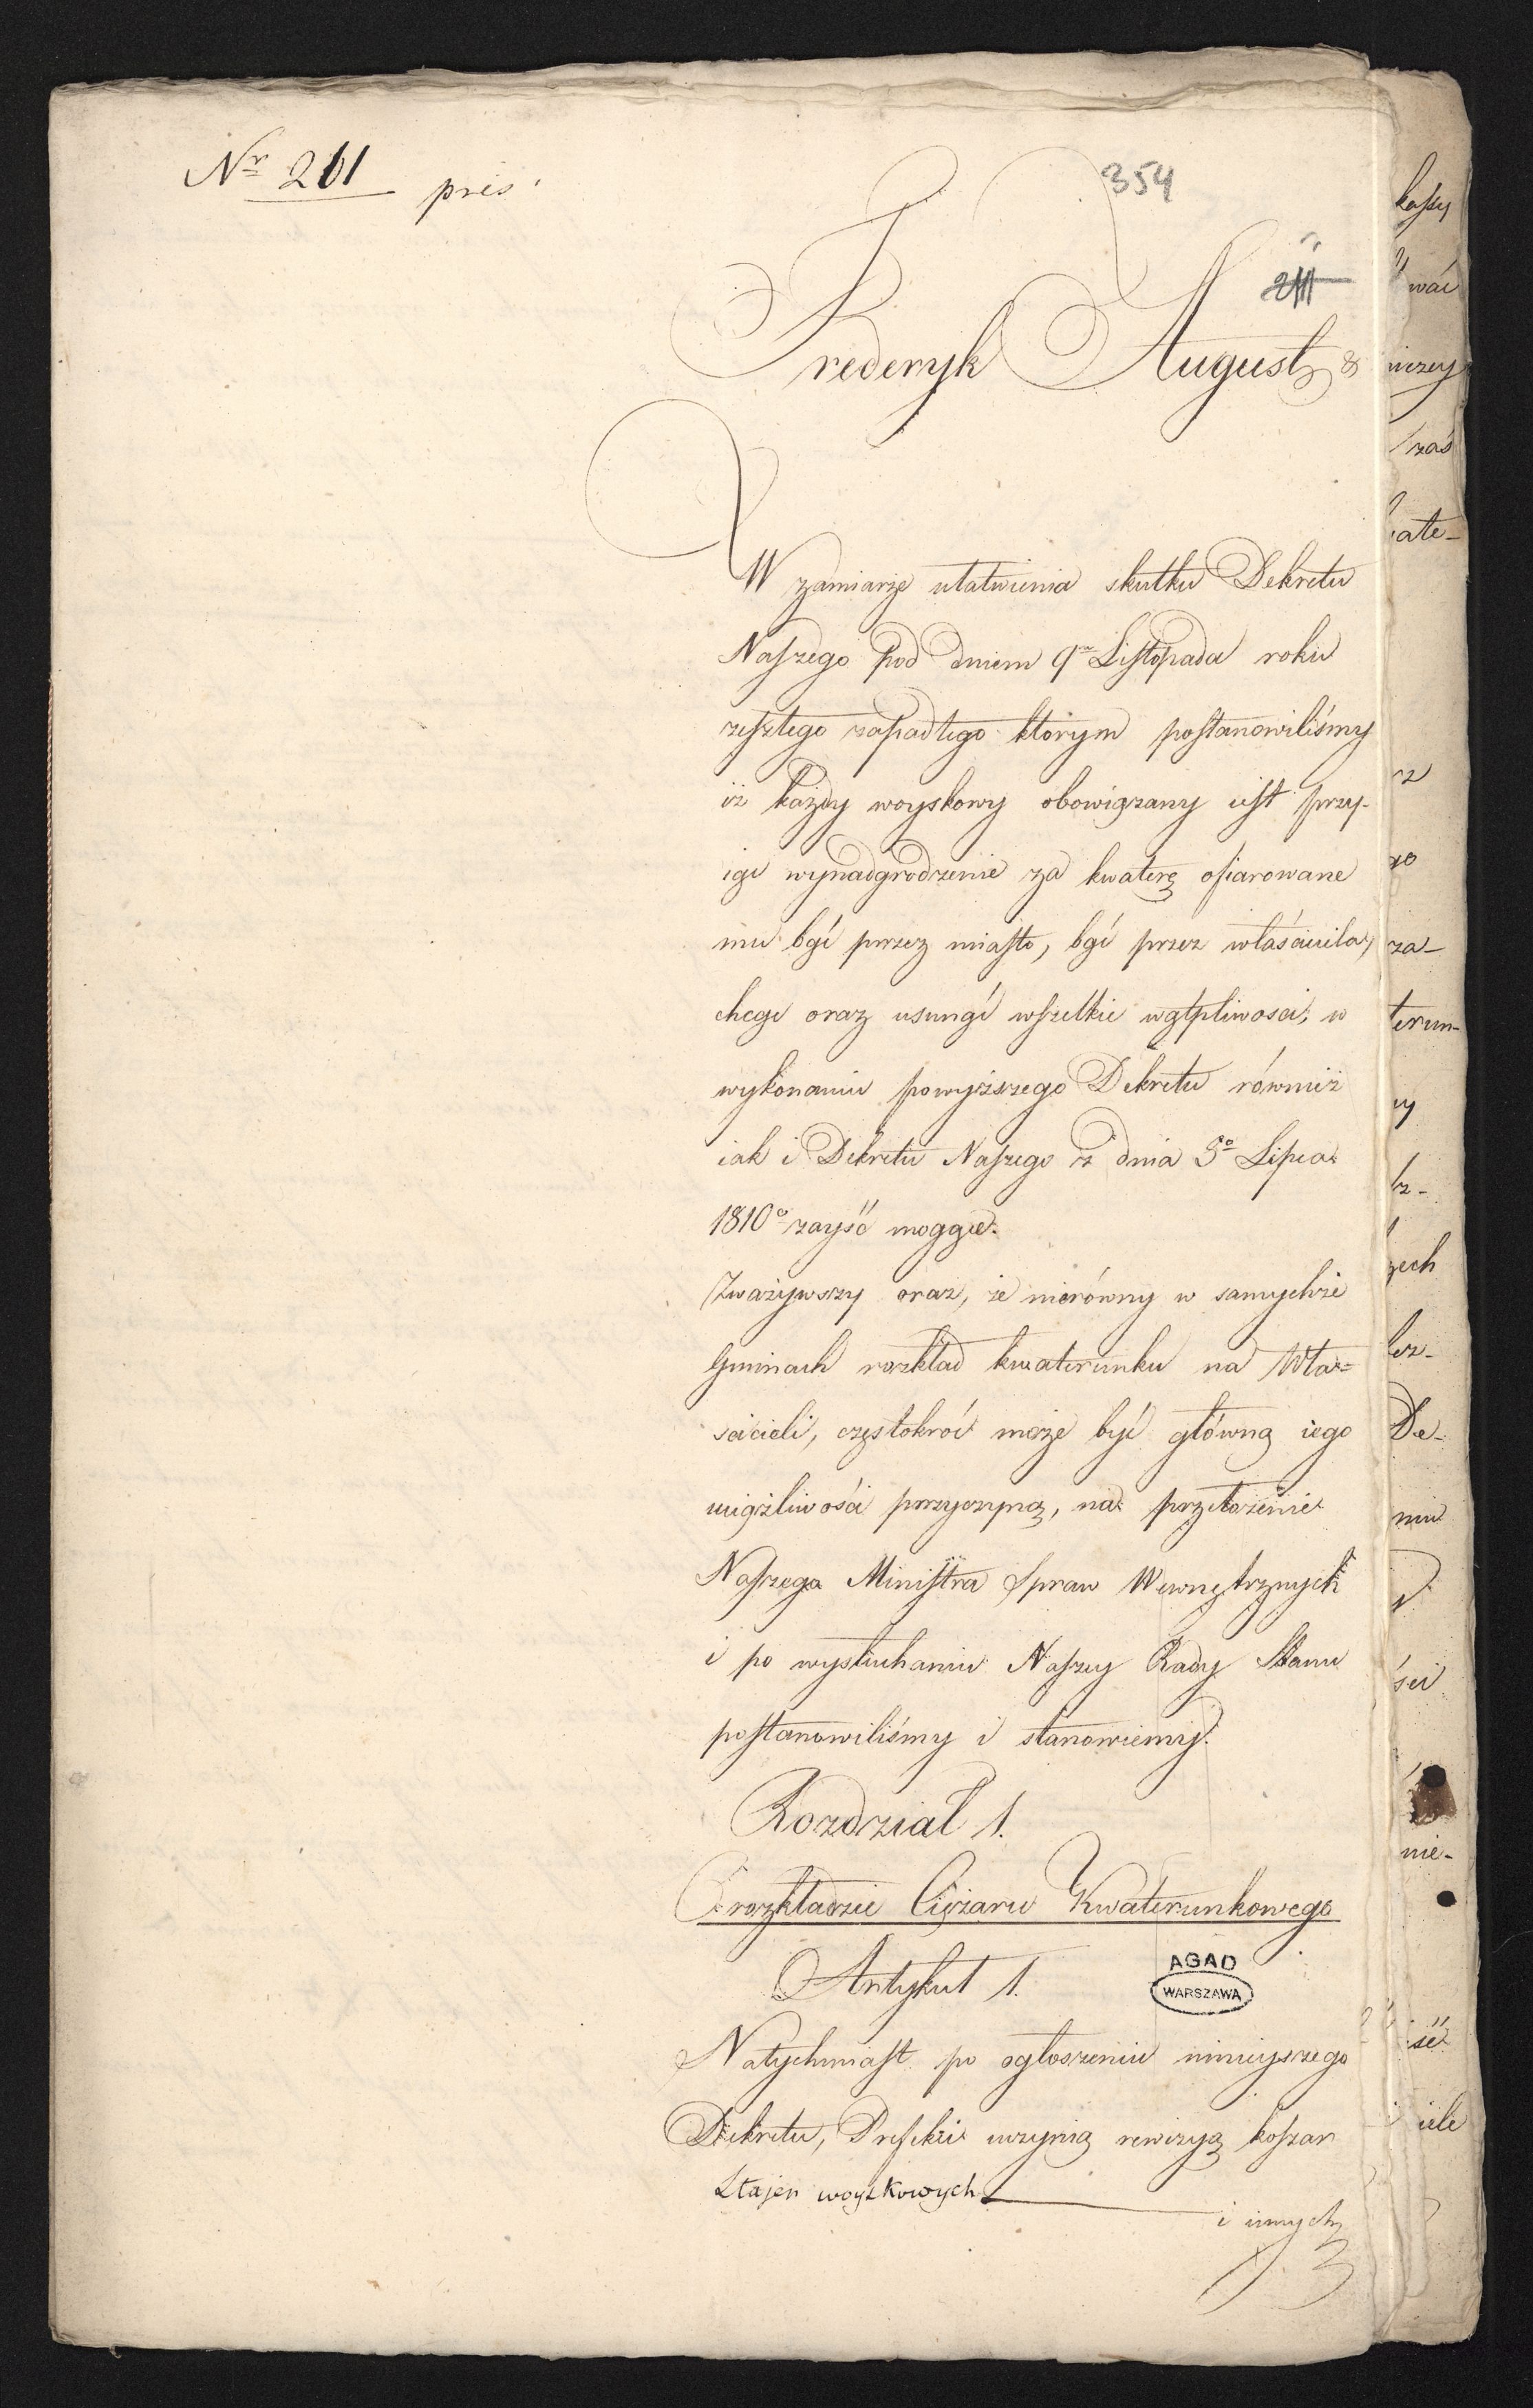 Nr 261 pris.
354
Frederyk August &
W zamiarze ułatwienia skutku Dekretu
Naszego pod dniem 9m Listopada roku
zeszłego zapadłego którym postanowiliśmy
iż każdy woyskowy obowiązany iest przy-
iąć wynadgrodzenie za kwaterę ofiarowane
mu bąć przez miasto, bąć przez właściciela,
chcąc oraz usunąć wszelkie wątpliwości, w
wykonaniu powyższego Dekretu równiéż
iak i Dekretu Naszego z dnia 5o Lipca
1810o zayść mogące.
Zważywszy oraz, że nierówny w samychże
Gminach rozkład kwaterunku na Wła=
ścicieli, częstokroć może być główną iego
uciążliwości przyczyną, na przełożenie
Naszego Ministra Spraw Wewnętrznych
i po wysłuchaniu Naszey Rady Stanu
postanowiliśmy i stanowiemy.
Rozdział 1.
O rozkładzie Ciężaru Kwaterunkowego
Artykuł 1.
AGAD
WARSZAWA
Natychmiast po ogłoszeniu ninieyszego
Dekretu, Prefekci uczynią rewizyą koszar
Stajen woyskowych
i innych
kassy
wać
niczey
zaś
kate-
cz
go
za-
terun-
ny
ych
De-
niu
ści
nie-
iść
iele